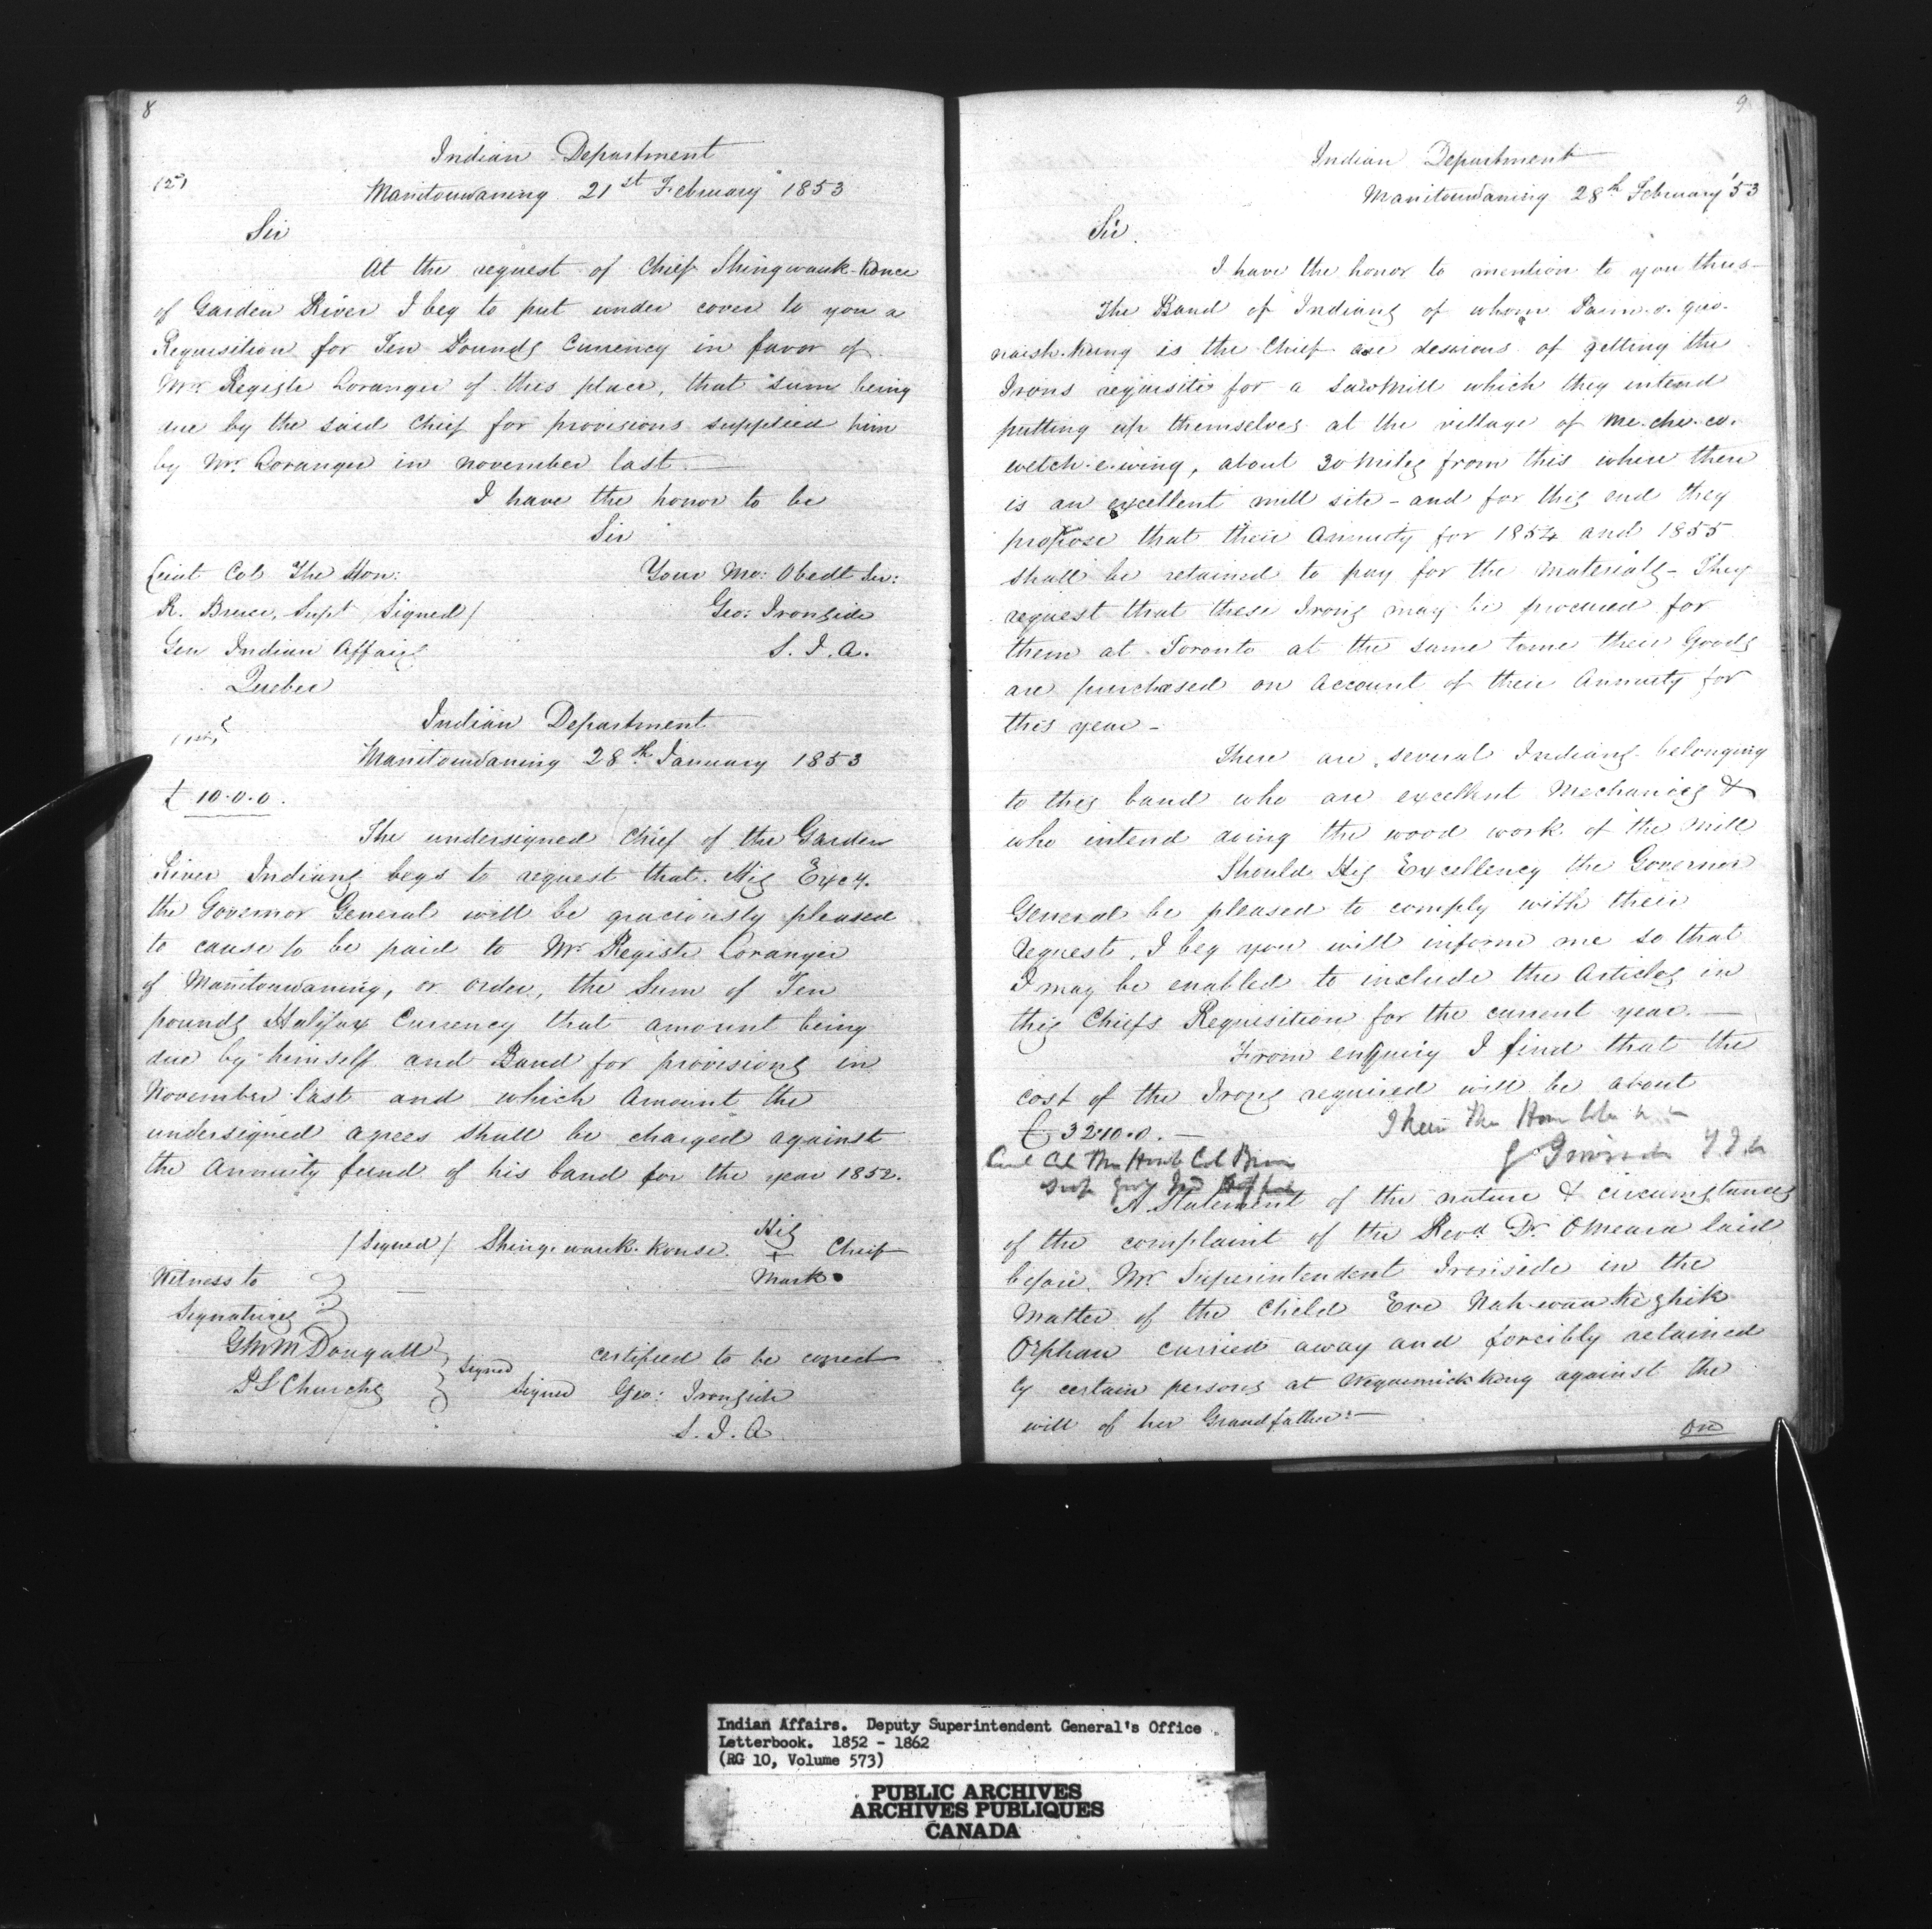 8
Indian Department
Manitouwaning 21st February 1853
Sir
At the request of Chief Shingwauk-konce
of Garden River I beg to put under cover to you a
Requisition for Ten Pounds Currency in favor of
Mr. Registe Loranger of this place, that sum being
due by the said Chief for provisions supplied him
by Mr. Loranger in november last.—
I have the honor to be
Sir
Lieut Col The Hon: Your Mo: Obedt Ser:
R. Bruce, Supt /Signed/ Geo: Ironside
Gen Indian Affairs S. I. A.
Quebec
Indian Department
Manitouwaning 28th January 1853
£ 10.0.0.
The undersigned Chief of the Garden
River Indians begs to request that His Excy.
the Governor General will be graciously pleased
to cause to be paid to Mr Registe Loranger
of Manitouwaning, or order, the Sum of Ten
pounds Halifax Currency that amount being
due by himself and Band for provisions in
November last and which Amount the
undersigned agrees shall be charged against
the Annuity fund of his band for the year 1852.
/Signed/ Shing-wauk-konse His + Mark Chief
Witness to
Signatures
G McDougall
P S Church
Signed
certified to be correct
Signed Geo: Ironside
S. I. A
9
Indian Department
Manitouwaning 28th February '53
Sir.
I have the honor to mention to you thus—
The Band of Indians of whom Paim-o-quo-
naish-kung is the Chief are desirous of getting the
Irons requisite for a Saw Mill which they intend
putting up themselves at the village of Me-che-co-
wetch-e-wing, about 30 Miles from this where there
is an excellent mill site - and for this end they
propose that their Annuity for 1854 and 1855
shall be retained to pay for the Materials - They
request that these Irons may be procured for
them at Toronto at the same time their Goods
are purchased on Account of their Annuity for
this year -
There are several Indians belonging
to this band who are excellent Mechanics &
who intend doing the wood work of the Mill
Should His Excellency the Governor
General be pleased to comply with their
request, I beg you will inform me so that
I may be enabled to include the Articles in
this Chiefs Requisition for the current year.—
From enquiry I find that the
cost of the Irons required will be about
£ 32.10.0.— I have the Hon
Col The Col Bruce G Ironside
A Statement of the nature & circumstances
of the complaint of the Revd. Dr. OMeara laid
before Mr Superintendent Ironside in the
Matter of the Child Eve Nah-wau ke ghik
Orphan carried away and forcibly retained
by certain persons at against the
will of her Grandfather:—
On
Indian Affairs. Deputy Superintendent General's Office
Letterbook. 1852 - 1862
(RG 10, Volume 573)
PUBLIC ARCHIVES
ARCHIVES PUBLIQUES
CANADA